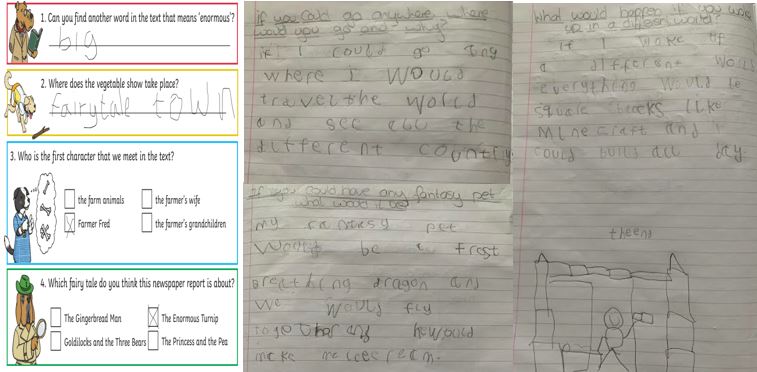 1. Can you find another word in the text that means 'enormous'?
big
2. Where does the vegetable show take place?
fairytale town
3. Who is the first character that we meet in the text?
the farm animals
the farmer's wife
Farmer Fred
the farmer's grandchildren
4. Which fairy tale do you think this newspaper report is about?
The Gingerbread Man
The Enormous Turnip
Goldilocks and the Three Bears
The Princess and the Pea
If you could go anywhere, where
would you go and why?
if I could go any
where I would
travel the world
and see all the
different country
If you could have any fantasy pet
what would it be?
my fantasy pet
would be a frost
breathing dragon and
we would fly
together and he would
make me icecream.
What would happen if you woke
up in a different world?
if I woke up
a different world
everything would be
square blocks like
Minecraft and I
could build all day.
the end